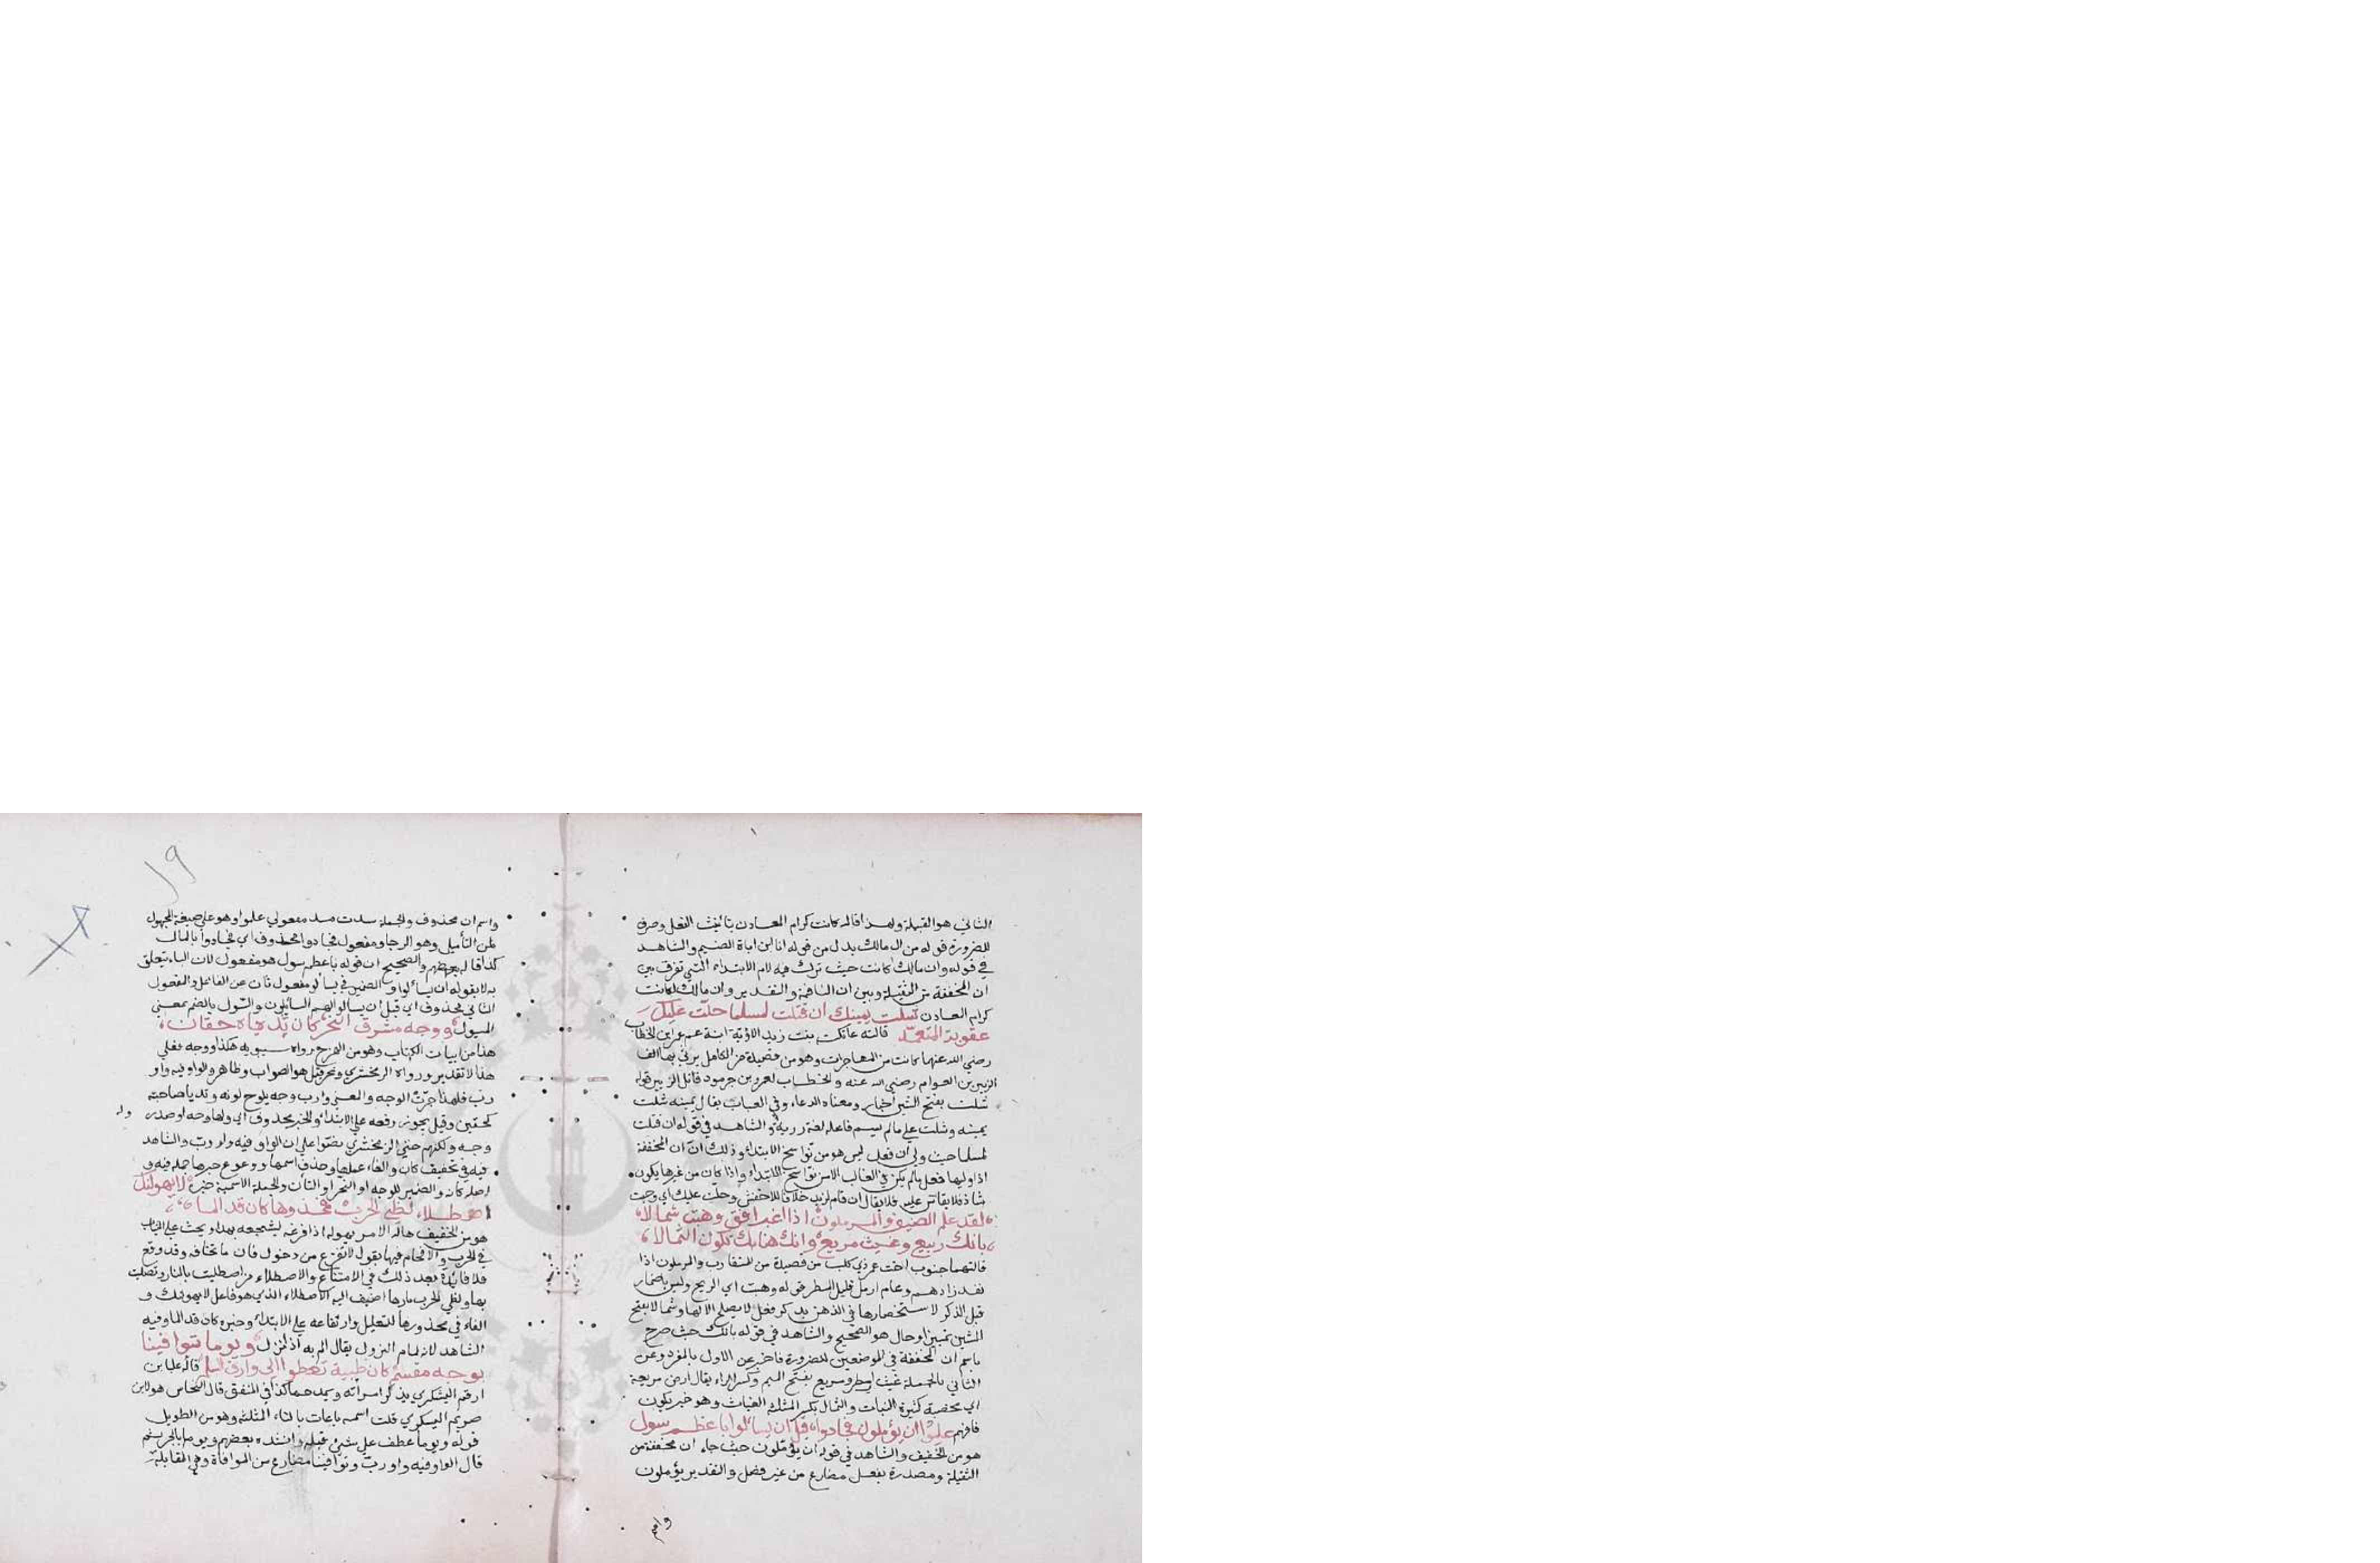 الثاني هو القبيلة ولهذا قال كانت كرام المعادن بتانيث الفعل وصرفه
للضرورة قوله من ال مالك بدل من قوله انا ابن اباة الضيم والشاهد
في قوله وان مالك كانت حيث ترك فيه لام الابتداء التي تفرق بين
ان المخففة من الثقيلة وبين ان النافية والتقدير وان مالك لكانت
كرام المعادن شلت يمينك ان قتلت لمسلما حلت عليك
عقوبة المتعمد قالته عاتكة بنت زيد ابنة عم عمر ابن الخطاب
رضي الله عنهما كانت من المهاجرات وهو من قصيدة من الكامل يرثى بها
الزبير بن العوام رضي الله عنه والخطاب لعمرو بن جرموز قاتل الزبير قوله
شلت بفتح الشين اخبار ومعناه الدعاء وفي العباب يقال يمينه شلت
يمينه وشلت على مالم يسم فاعله لغة ردية والشاهد في قوله ان قتلت
لمسلما حيث ولي ان فعل ليس هو من نواسخ الابتداء وذلك ان ان المخففة
اذا وليها فعل لم يكن في الغالب الا من نواسخ الابتداء واذا كان من غيرها يكون
شاذ فلا يقاس عليه فلا يقال ان قام لزيد خلافا للاخفش وحلت عليك اي وجبت
لقد علم الضيف والمرملون اذا اغبر افق وهبت شمالا
بانك ربيع وغيث مريع وانك هناك تكون الثمالا
قالتهما جنوب اخت عمر ذي كلب من قصيدة من المتقارب والمرملون اذا
نفد زادهم وعام ارمل قليل المطر قوله وهبت اي الريح وليس باضمار
قبل الذكر لاستحضارها في الذهن بذكر فعل لا يصلح الا لها وشمالا بفتح
الشين تمييز او حال هو الصحيح والشاهد في قوله بانك حيث صرح
باسم ان المخففة في الموضعين للضرورة فاخبر عن الاول بالمفرد وعن
الثاني بالجملة غيث مريع بفتح الميم وكسر الراء يقال ارض مريعة
اي مخصبة كثيرة النبات والثمال بكسر المثلثه الغياث وهو خبر يكون
فافهم علموا ان يؤملون فجادوا قبل ان يسالوا باعظم سول
هو من الخفيف والشاهد في قوله ان يؤملون حيث جاء ان مخففة من
الثقيلة ومصدرة بفعل مضارع من غير فصل والتقدير يؤملون
واسم
واسم ان محذوف والجملة سدت مسد مفعولي علموا وهو على صيغة المجهول
من التأميل وهو الرجا ومفعول فجادوا محذوف اي فجادوا بالمال
كذا قاله بعضهم والصحيح ان قوله باعظم سول هو مفعول لان الباء تتعلق
به لا بقوله ان يسألوا والضمير في يسألو مفعول ناب عن الفاعل والمفعول
الثاني محذوف اي قبل ان يسألوا السايلون والسول بالضم بمعنى
المسول ووجه مشرق النحر كان ثدياه حقان
هذا من ابيات الكتاب وهو من الهزج رواه سيبويه هكذا ووجه فعلى
هذا لا تقدير ورواه الزمخشري ونحر قيل هو الصواب وظاهر والواو فيه واو
رب فلهذا جرت الوجه والمعنى وارب وجه يلوح لونه وثديا صاحبه
كحقين وقيل يجوز رفعه على الابتداء والخبر محذوف اي ولها وجه او صدر
وجه ولكنهم حتى الزمخشري نصوا على ان الواو فيه واو رب والشاهد
فيه في تخفيف كان والغاء عملها وحذف اسمها ووقوع خبرها جملة
اصله كان والضمير للوجه او النحر او الشان والجملة الاسمية خبره لا يهولنك
اصطلاء لظى الحرب فمحذورها كان قد الما
هو من الخفيف هاله الامر يهوله اذا افزعه يشجعه بهذا ويحث على
في الحرب والاقحام فيها يقول لا تفزع من دخول فان ما تخافه وقد وقع
فلا فائدة بعد ذلك في الامتناع والاصطلاء من اصطليت بالنار وتصليت
بها ولظى الحرب نارها اضيف اليه الاصطلاء الذي هو فاعل لا يهولنك و
الفاء في محذورها للتعليل وارتفاعه على الابتداء وخبره كان قد الما وفيه
الشاهد لانه لمام النزول يقال الم به اذا نزل ويوما توافينا
بوجه مقسم كان ظبية تعطو الى وارق السلم قاله علبا بن
ارقم اليشكري يذكر امرأته ويمدحها كذا في المنفق قال النحاس هو لابن
صريم اليشكري قلت اسمه باعث بالثاء المثلثه وهو من الطويل
قوله ويوما عطف على شيء قبله وانشده بعضهم ويوم بالجر ثم
قال الواو فيه واو رب وتوافينا مضارع من الموافاة وهي المقابلة